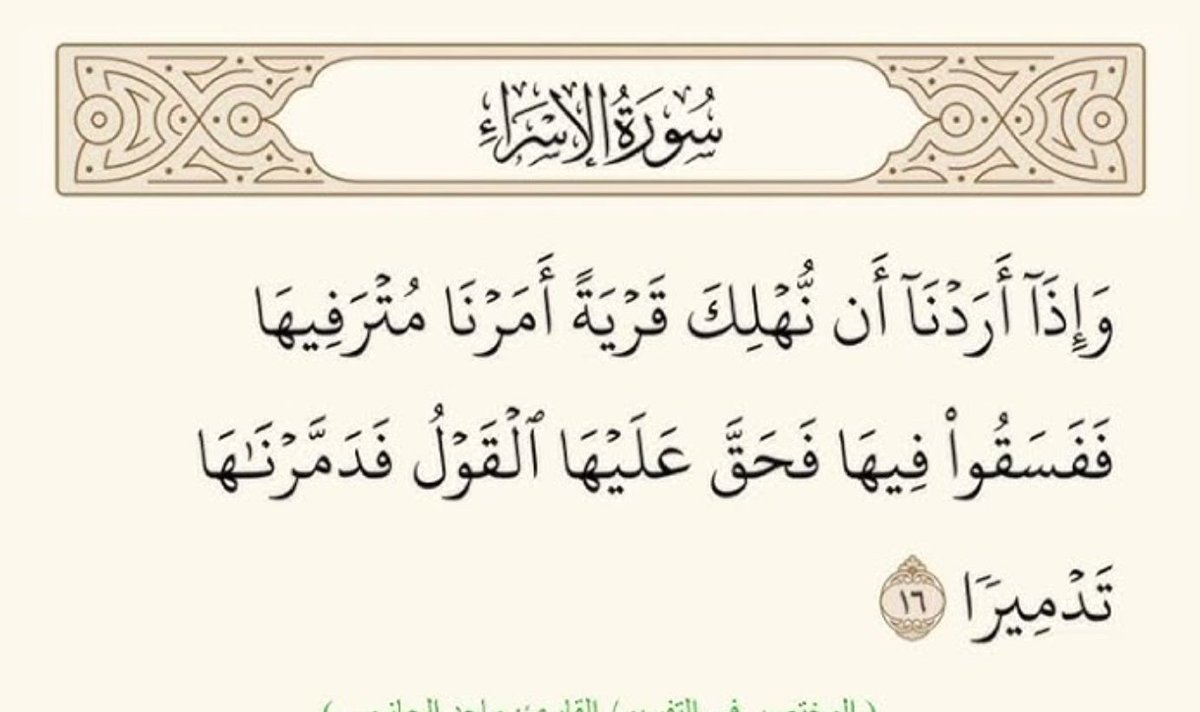 سُورَةُ الإِسْرَاءِ
وَإِذَآ أَرَدْنَآ أَن نُّهْلِكَ قَرْيَةً أَمَرْنَا مُتْرَفِيهَا
فَفَسَقُوا۟ فِيهَا فَحَقَّ عَلَيْهَا ٱلْقَوْلُ فَدَمَّرْنَـٰهَا
تَدْمِيرًا ١٦